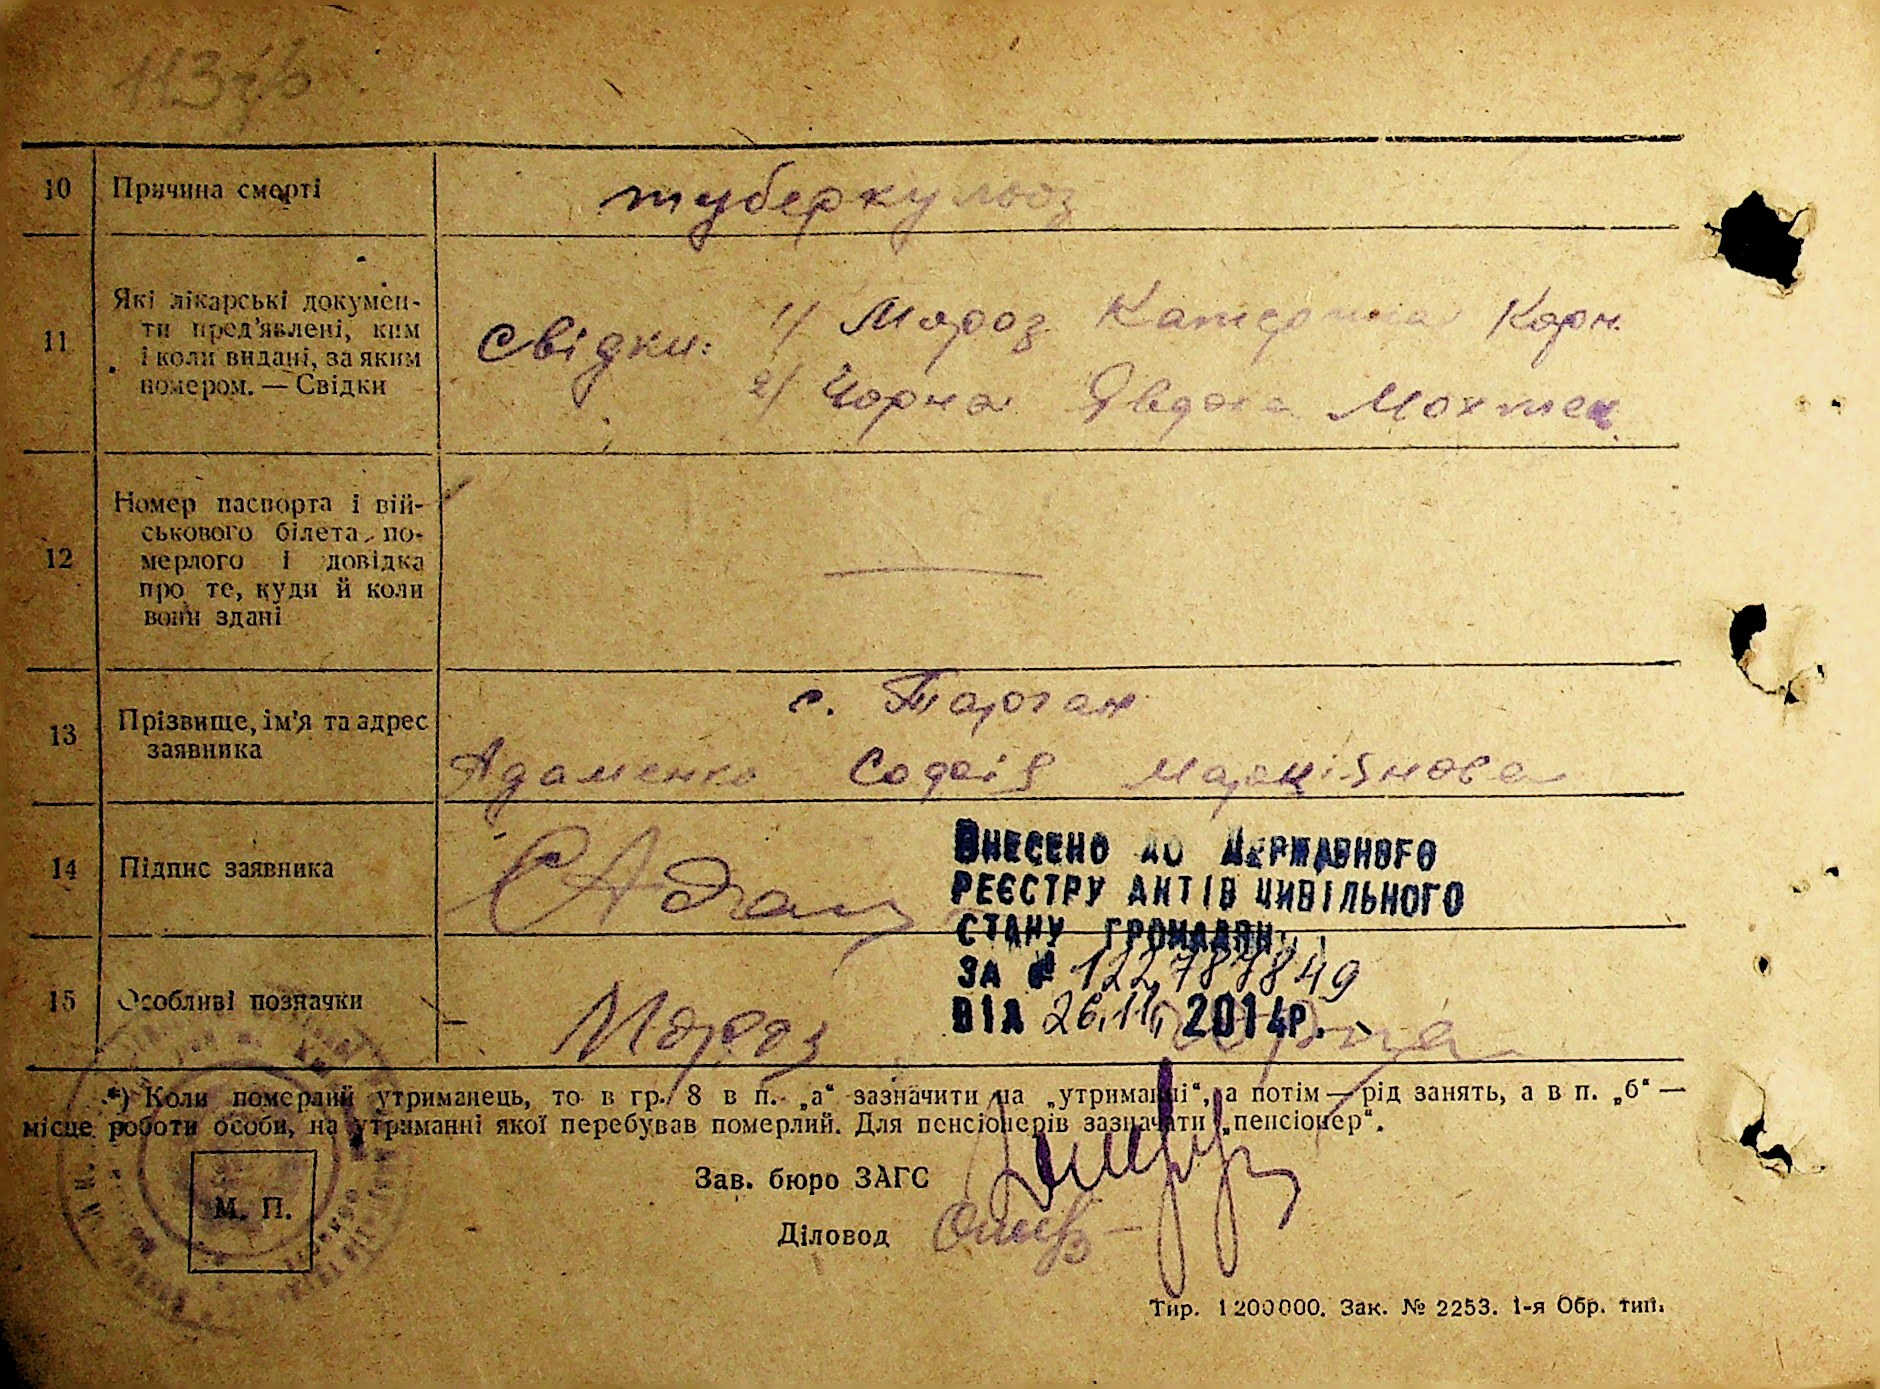 10 Причина смерті туберкульоз
11 Які лікарські докумен-
ти пред'явлені, ким
і коли видані, за яким
номером. — Свідки
Свідки: 1/ Мороз Катерина Корн.
2/ Чорна Явдоха
12 Номер паспорта і вій-
ськового білета по-
мерлого і довідка
про те, куди й коли
вони здані
—
13 Прізвище, ім'я та адрес
заявника
с. Тарган
Адаменко Софія Марціянова
14 Підпис заявника
15 Особливі позначки
Мороз Чорна
Внесено до Державного
реєстру актів цивільного
стану громадян
за № 122787849
від 26.11. 2014р.
*) Коли померлий утриманець, то в гр. 8 в п. „а“ зазначити на „утриманні“, а потім — рід занять, а в п. „б“ —
місце роботи особи, на утриманні якої перебував померлий. Для пенсіонерів зазначати „пенсіонер“.
М. П.
Зав. бюро ЗАГС
Діловод
Тир. 1200000. Зак. № 2253. 1-я Обр. тип.